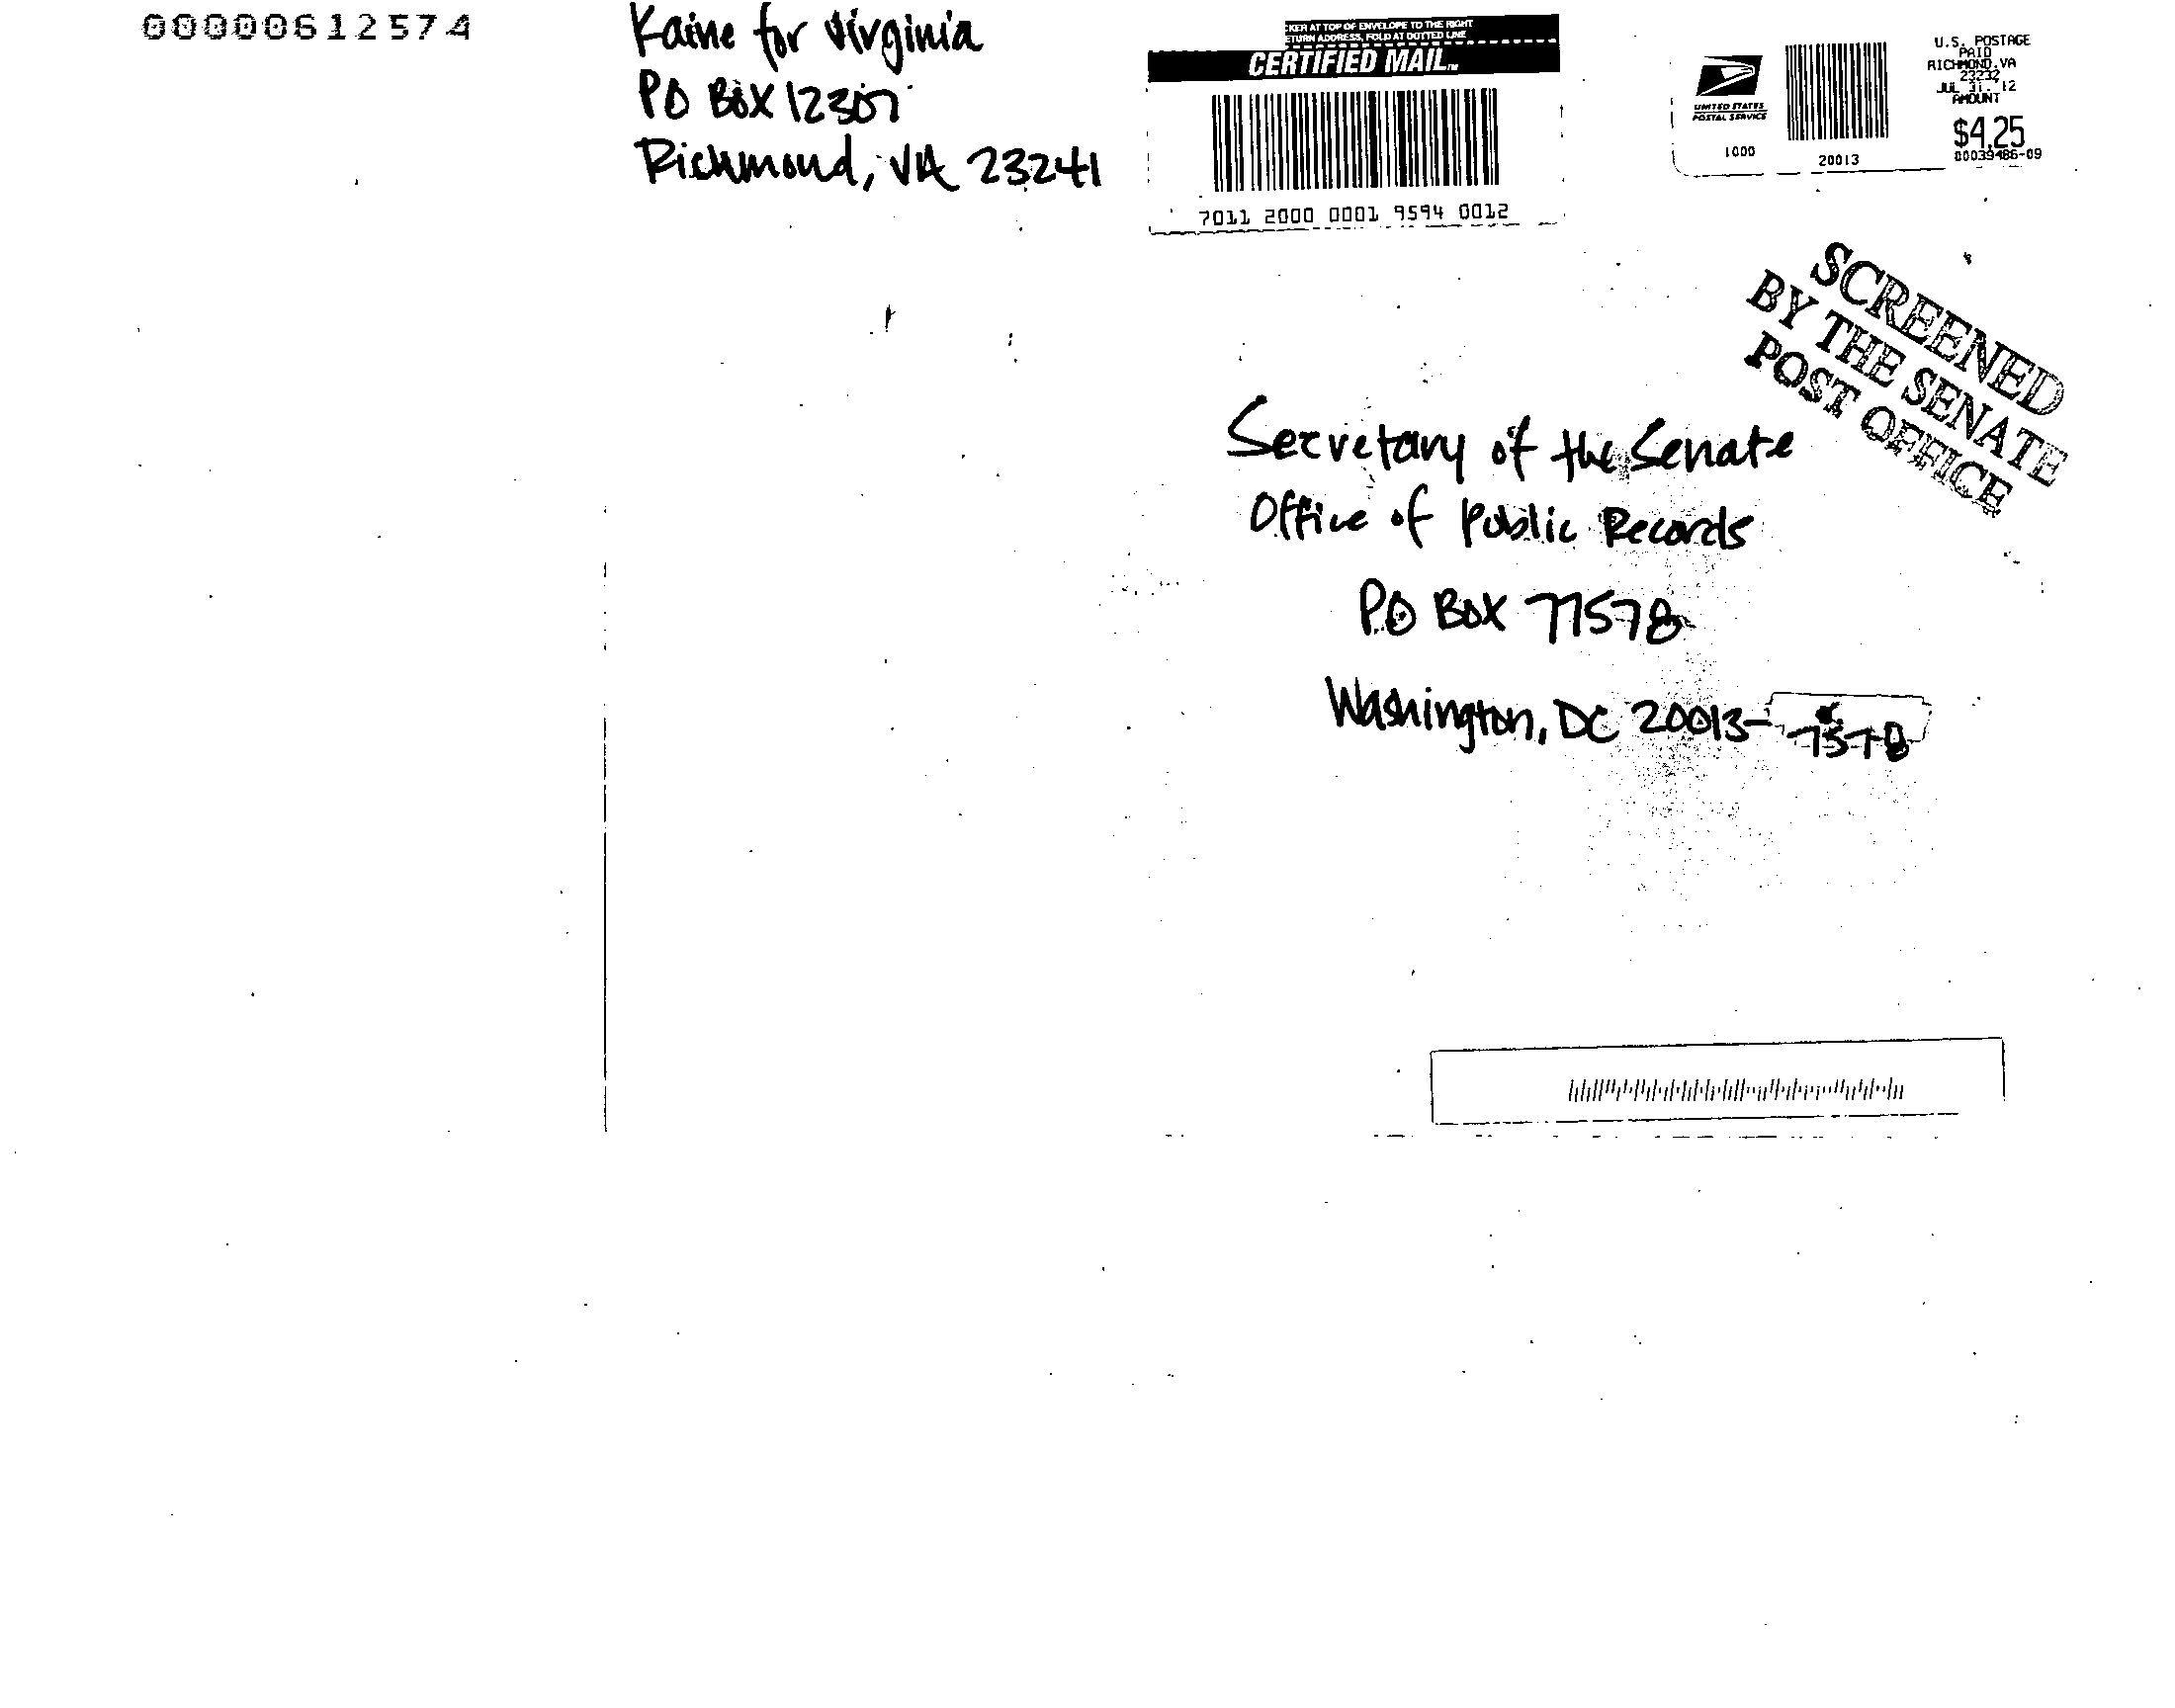 00000612574
Kaine for Virginia
PO Box 12307
Richmond, VA 23241
CKER AT TOP OF ENVELOPE TO THE RIGHT
ETURN ADDRESS, FOLD AT DOTTED LINE
CERTIFIED MAIL™
7011 2000 0001 9594 0012
UNITED STATES
POSTAL SERVICE
1000
20013
U.S. POSTAGE
PAID
RICHMOND, VA
23232
JUL 31. '12
AMOUNT
$4.25
00039486-09
SCREENED
BY THE SENATE
POST OFFICE
Secretary of the Senate
Office of Public Records
PO Box 77578
Washington, DC 20013-7578